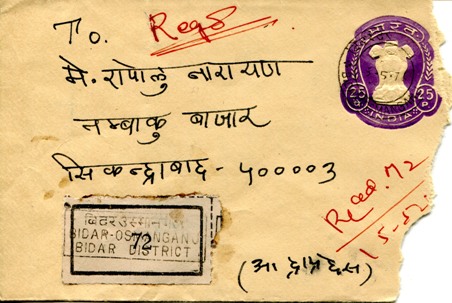 To.
Regd
भारत
25 25
P
INDIA
मे. रापोलु नारायण
तम्बाकु बाजार
सिकन्द्राबाद - ५००००३
Regd. 72
15-5
बिदर उस्मानगंज
BIDAR-OSMANGANJ
72
BIDAR DISTRICT
(आ द्रा प्रदेस)